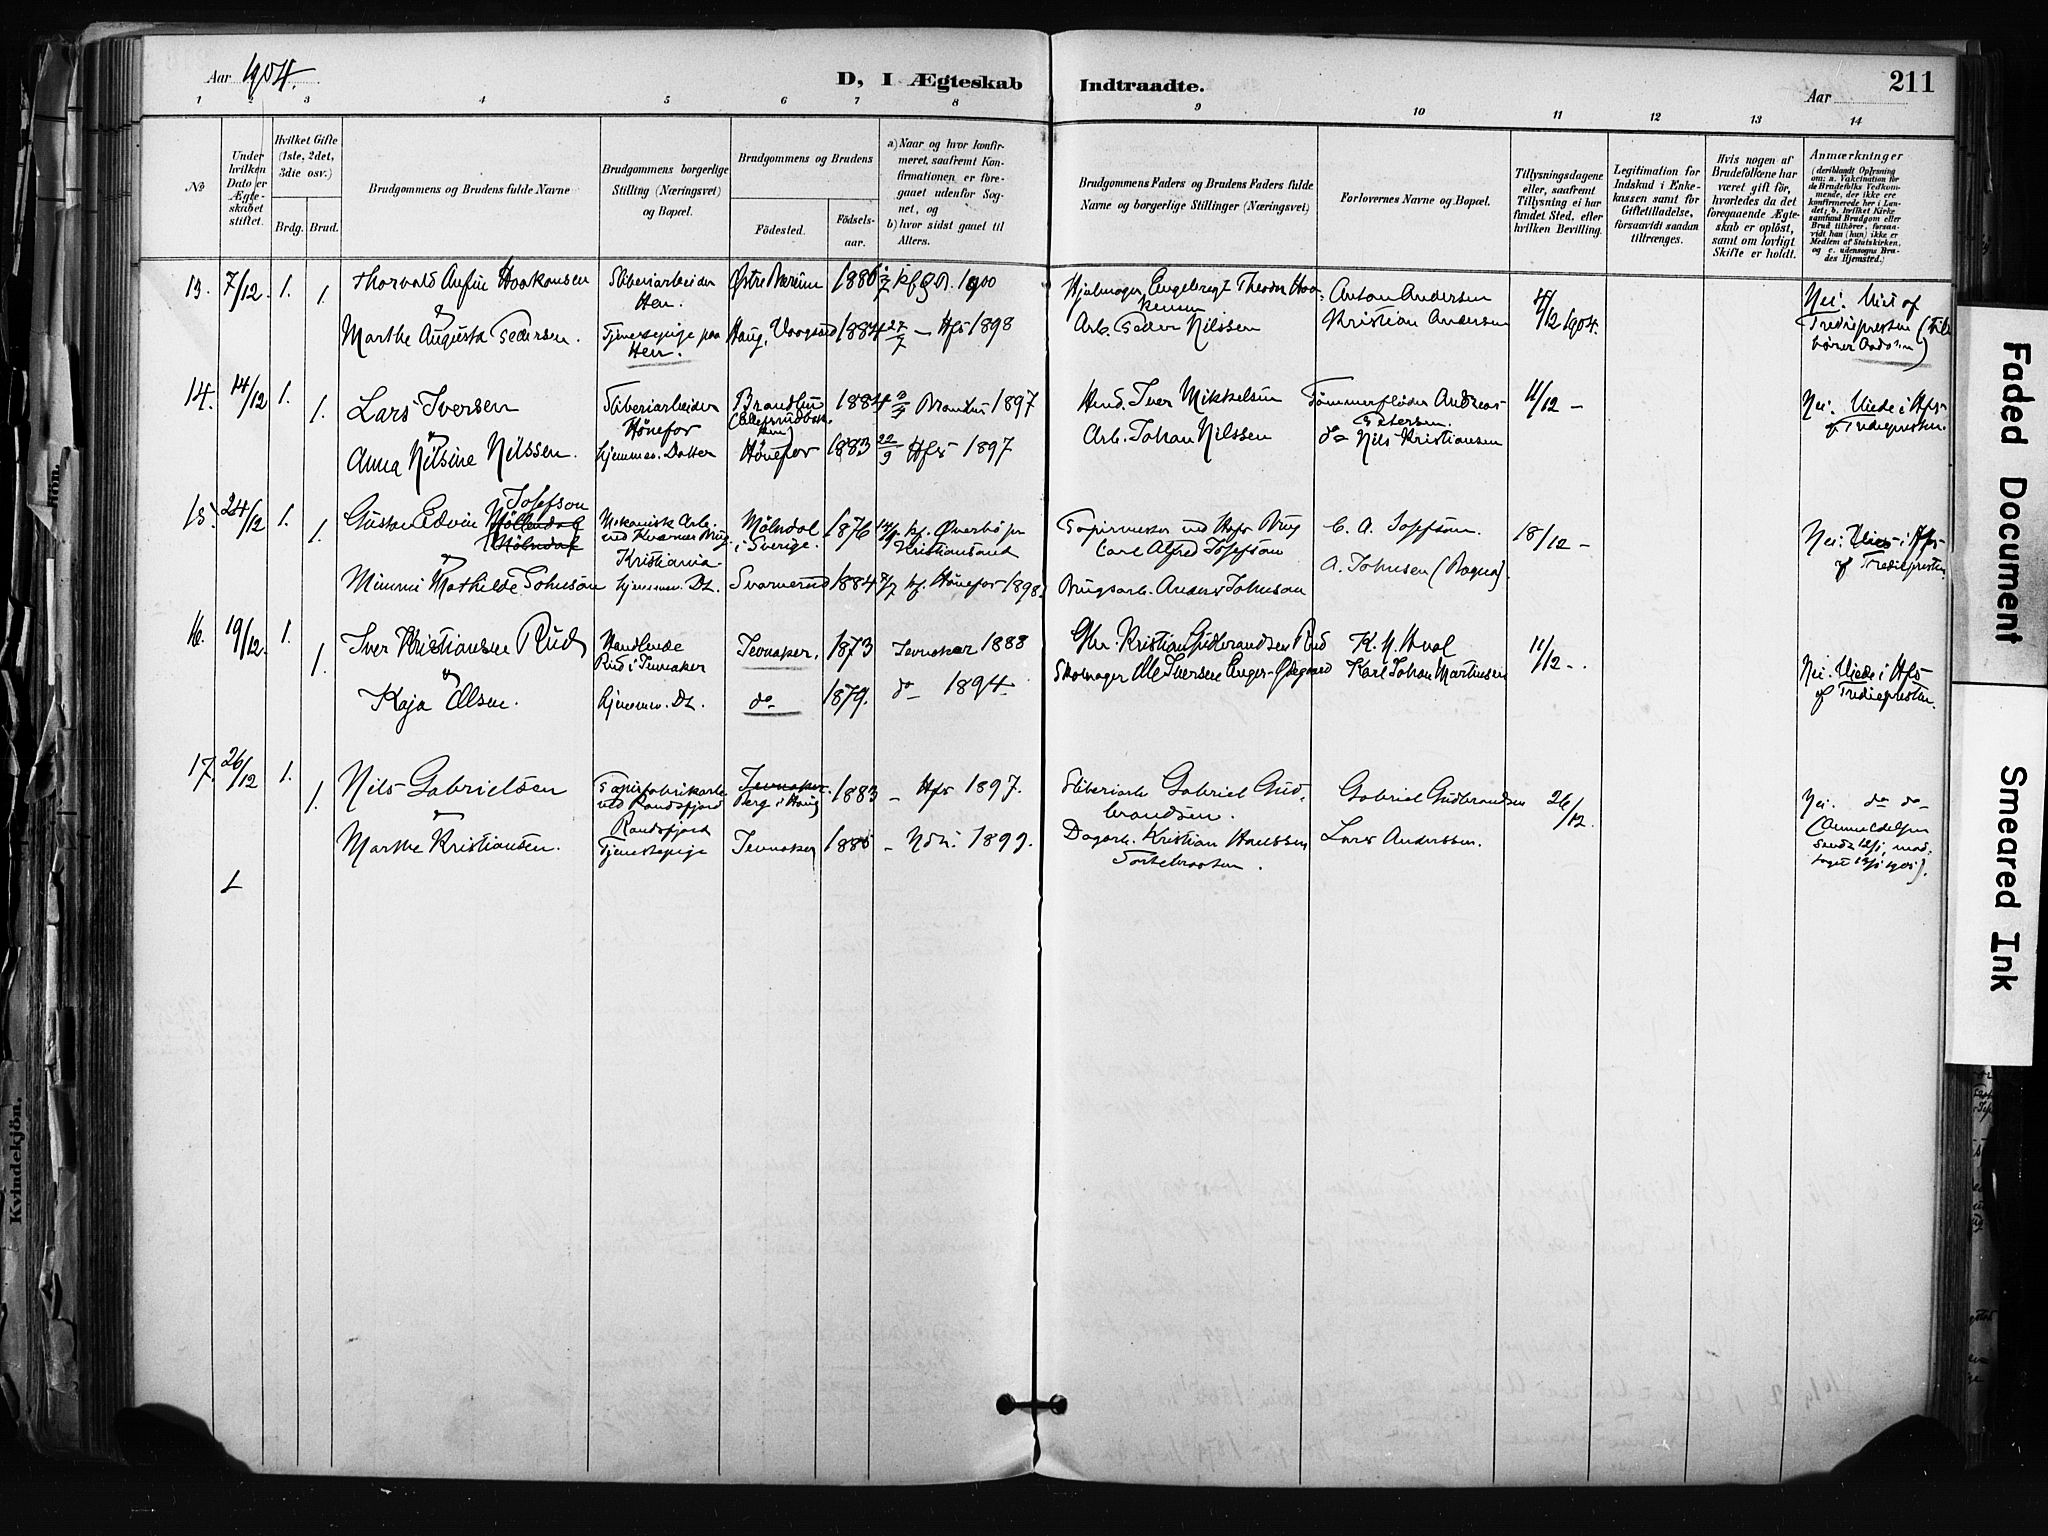 Aar 1904.
D, I Ægteskab
Indtraadte.
Aar
211
1 2 3 4 5 6 7 8 9 10 11 12 13 14
No
Under hvilken Dato er Ægteskabet stiftet.
Hvilket Gifte (1ste, 2det, 3die osv.)
Brdg. Brud.
Brudgommens og Brudens fulde Navne
Brudgommens borgerlige Stilling (Næringsvei) og Bopæl.
Brudgommens og Brudens
Födested.
Födsels-aar.
a) Naar og hvor konfirmeret, saafremt Konfirmationen er foregaaet udenfor Sognet, og
b) hvor sidst gaaet til Alters.
Brudgommens Faders og Brudens Faders fulde Navne og borgerlige Stillinger (Næringsvei)
Forlovernes Navne og Bopæl.
Tillysningsdagene eller, saafremt Tillysning ei har fundet Sted, efter hvilken Bevilling.
Legitimation for Indskud i Enkekassen samt for Giftetilladelse, forsaavidt saadan tiltrænges.
Hvis nogen af Brudefolkene har været gift för, hvorledes da det foregaaende Ægteskab er oplöst, samt om lovligt Skifte er holdt.
Anmærkninger (deriblandt Oplysning om: a. Vakcination for de Brudefolks Vedkommende, der ikke ere konfirmerede her i Landet; b. hvilket Kirkesamfund Brudgom eller Brud tilhörer, forsaavidt han (hun) ikke er Medlem af Statskirken, og c. udensogns Brudes Hjemsted.)
13. 7/12. 1. Thorvald Anfin Haakonsen Sliberiarbeider Hen. Østre Bærum 1886 1900
Hjulmager Engebregt Theodor Anton Andersen 4/12 1904. Nei. Viet af Trediepresten
1. Marthe Augusta Pedersen. Tjenestepige paa Hen. Haug, 1884 Hfs 1898
Arb. Peder Nilssen Kristian Andersen
14. 14/12 1. Lars Iversen Sliberiarbeider Hönefos Brandbu 1884 Brandbu 1897
Iver Mikkelsen Tömmerfløder Andreas Petersen. 11/12 - Nei. Viede i Hfs af Trediepresten.
1. Anna Nilsine Nilssen. hjemmev. Datter Hönefos 1883 22/9 Hfs 1897
Arb. Johan Nilssen do Nils Kristiansen
15. 24/12 1. Gustav Edvin Josefson Mölndal Mekanisk Arb. ved Kværner Brug Kristiania Mölndal i Sverige. 1876 Kristiansand
Papirmester ved Hfs Brug Carl Alfred Josefson C. A. Josefson. 18/12 - Nei. Viede i Hfs af Trediepresten.
1. Mimmi Mathilde Johnson hjemmev. Dt. 1884 kf. Hönefos 1898.
Brugsarb. Anders Johnson A. Johnsen (Bogna).
16. 19/12. 1. Iver Kristiansen Rud Handlende Rud i Jevnaker Jevnaker. 1873 Jevnaker 1888
Gbr. Kristian Gudbrandsen Rud K. H. Hval 11/12 -. Nei. Viede i Hfs af Trediepresten.
1. Kaja Olsen. hjemmev. Dt. do 1879. do 1894.
Skomager Ole Iversen Enger-Ødegaard Karl Johan Martinsen
17. 26/12 1. Nils Gabrielsen Papirfabrikarb. ved Randsfjord Jevnaker. Berg i Haug 1883 - Hfs 1897.
Sliberiarb. Gabriel Gudbrandsen. Gabriel Gudbrandsen 26/12. Nei. do do
1. Marthe Kristiansen. Randsfjord Tjenestepige Jevnaker 1885 - 1899.
Dagarb. Kristian Hanssen Lars Anderssen. (Anmeldelsen sendt 12/1, modtaget 14/1 1905).
Faded Document
Smeared Ink
Kvindekjön.